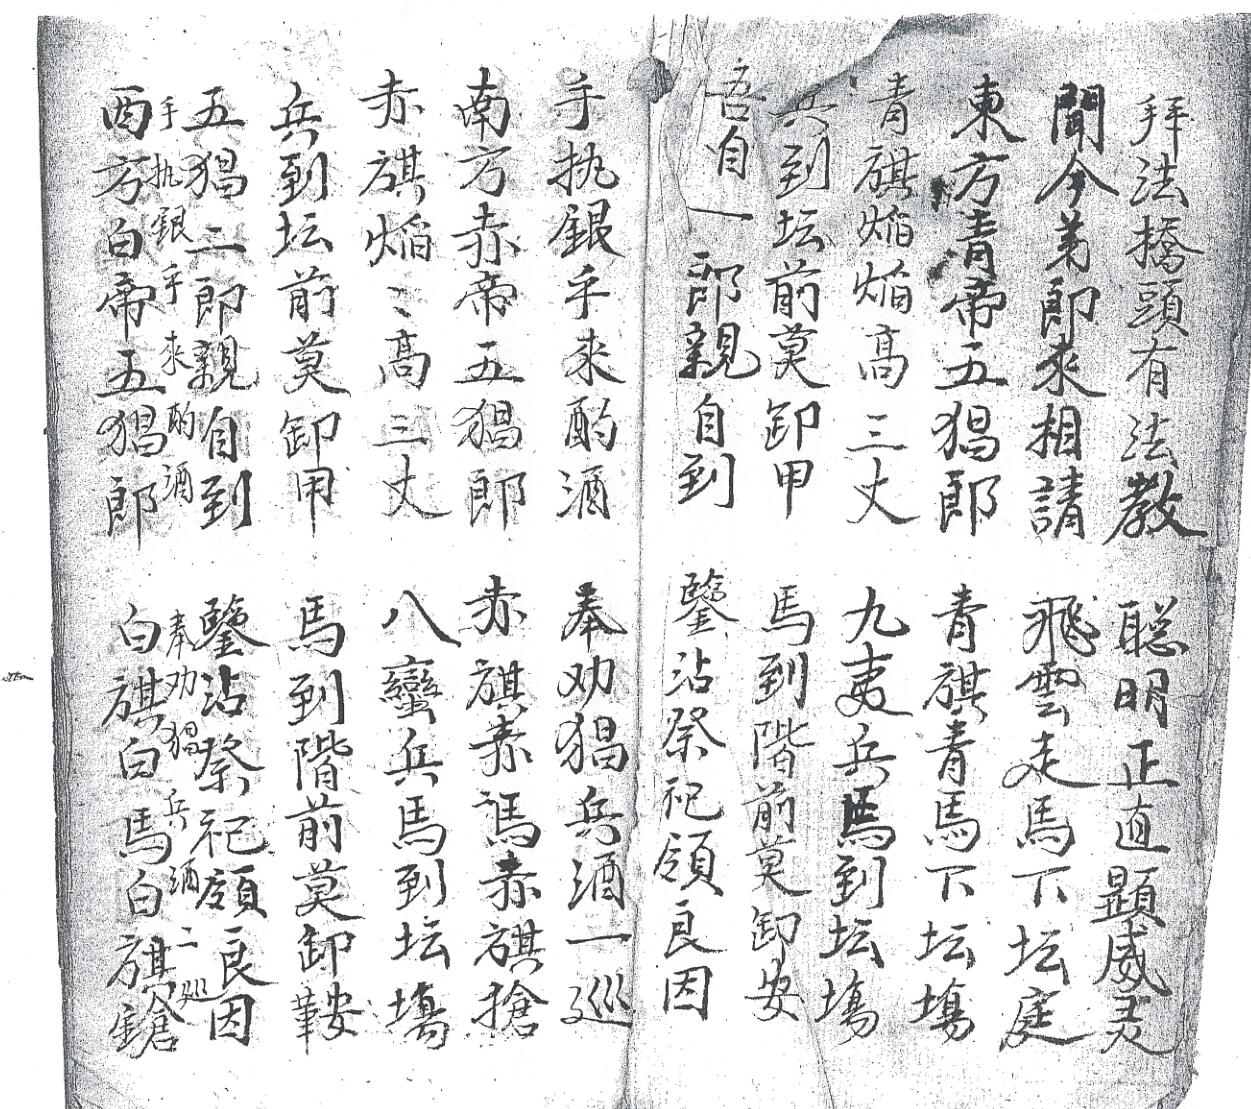 拜法橋頭有法教　聡明正直顕威灵
聞今弟郎來相請　飛雲走馬下坛庭
東方青帝五猖郎　青旗青馬下坛塲
青旗焰焰高三丈　九夷兵馬到坛塲
兵到坛前莫卸甲　馬到階前莫卸安
吾自一郎親自到　鑒沾祭祀領良因
手执銀手來酌酒　奉劝猖兵酒一巡
南方赤帝五猖郎　赤旗赤馮赤旗搶
赤旗焰〻高三丈　八蠻兵馬到坛塲
兵到坛前莫卸甲　馬到階前莫卸鞍
五猖二郎親自到　鑒沾祭祀領良因
手执銀手來酌酒　奉劝猖兵酒二巡
西方白帝五猖郎　白旗白馬白旗鎗